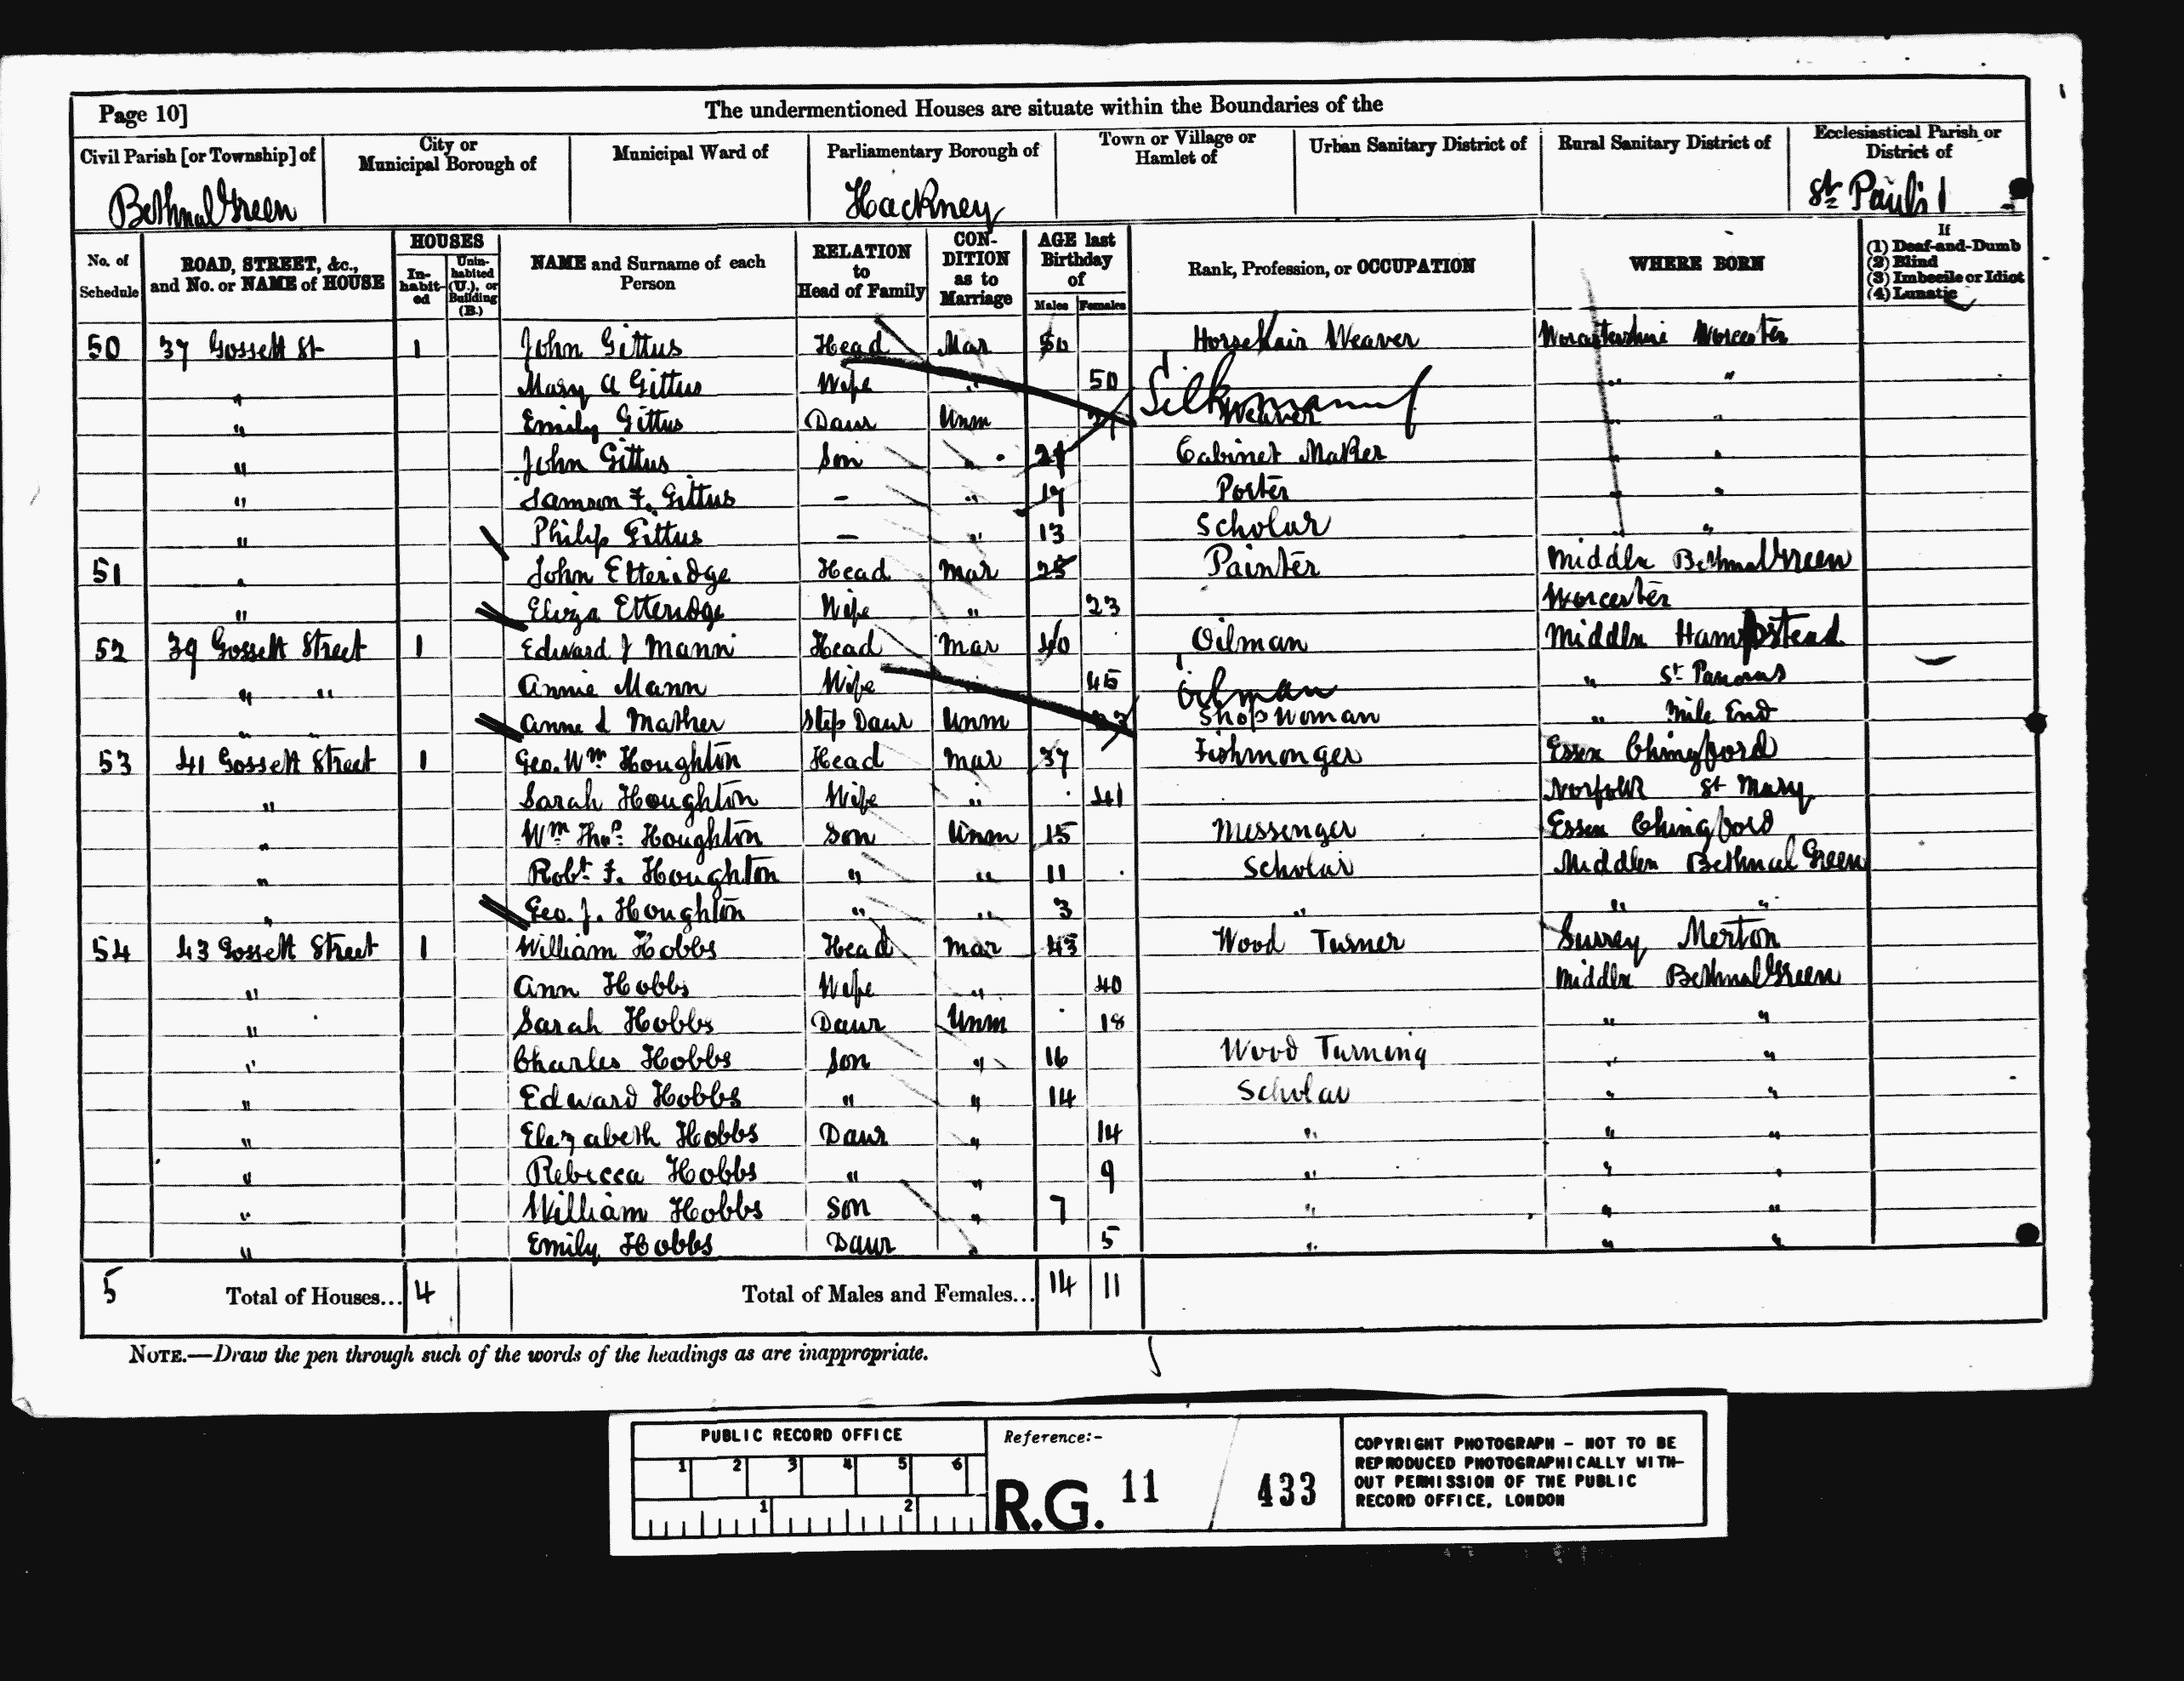 Page 10]
The undermentioned Houses are situate within the Boundaries of the
Civil Parish [or Township] of
City or Municipal Borough of
Municipal Ward of
Parliamentary Borough of
Town or Village or Hamlet of
Urban Sanitary District of
Rural Sanitary District of
Ecclesiastical Parish or District of
Bethnal Green Hackney St Paul's
No. of Schedule
ROAD, STREET, &c., and No. or NAME of HOUSE
HOUSES
In-habit-ed
Unin-habited (U.), or Building (B.)
NAME and Surname of each Person
RELATION to Head of Family
CON-DITION as to Marriage
AGE last Birthday of
Males Females
Rank, Profession, or OCCUPATION
WHERE BORN
If
(1) Deaf-and-Dumb
(2) Blind
(3) Imbecile or Idiot
(4) Lunatic
50 37 Gossett St 1 John Gittus Head Mar 50 Horse Hair Weaver Worcestershire Worcester
" Mary A Gittus Wife " 50 " "
" Emily Gittus Daur Unm Silk manuf Weaver " "
" John Gittus Son " 21 Cabinet Maker " "
" Samson F. Gittus - " 17 Porter " "
" Philip Gittus - " 13 Scholar " "
51 " John Etteridge Head Mar 25 Painter Middlx Bethnal Green
" Eliza Etteridge Wife " 23 Worcester
52 39 Gossett Street 1 Edward J Mann Head Mar 40 Oilman Middlx Hampstead
" " Annie Mann Wife " 45 " St Pancras
" " Anne L Mather Step Daur Unm 23 Oilman Shop Woman " Mile End
53 41 Gossett Street 1 Geo. Wm Houghton Head Mar 37 Fishmonger Essex Chingford
" Sarah Houghton Wife " 41 Norfolk St Mary
" Wm Thos. Houghton Son Unm 15 Messenger Essex Chingford
" Robt. F. Houghton " " 11 Scholar Middlex Bethnal Green
" Geo. J. Houghton " " 3 " " "
54 43 Gossett Street 1 William Hobbs Head Mar 43 Wood Turner Surrey Merton
" Ann Hobbs Wife " 40 Middlx Bethnal Green
" Sarah Hobbs Daur Unm 18 " "
" Charles Hobbs Son " 16 Wood Turning " "
" Edward Hobbs " " 14 Scholar " "
" Elezabeth Hobbs Daur " 14 " " "
" Rebecca Hobbs " " 9 " " "
" William Hobbs Son " 7 " " "
" Emily Hobbs Daur " 5 " " "
5 Total of Houses... 4 Total of Males and Females... 14 11
NOTE.—Draw the pen through such of the words of the headings as are inappropriate.
PUBLIC RECORD OFFICE
1 2 3 4 5 6
1 2
Reference:-
R.G. 11 / 433
COPYRIGHT PHOTOGRAPH – NOT TO BE
REPRODUCED PHOTOGRAPHICALLY WITH-
OUT PERMISSION OF THE PUBLIC
RECORD OFFICE, LONDON